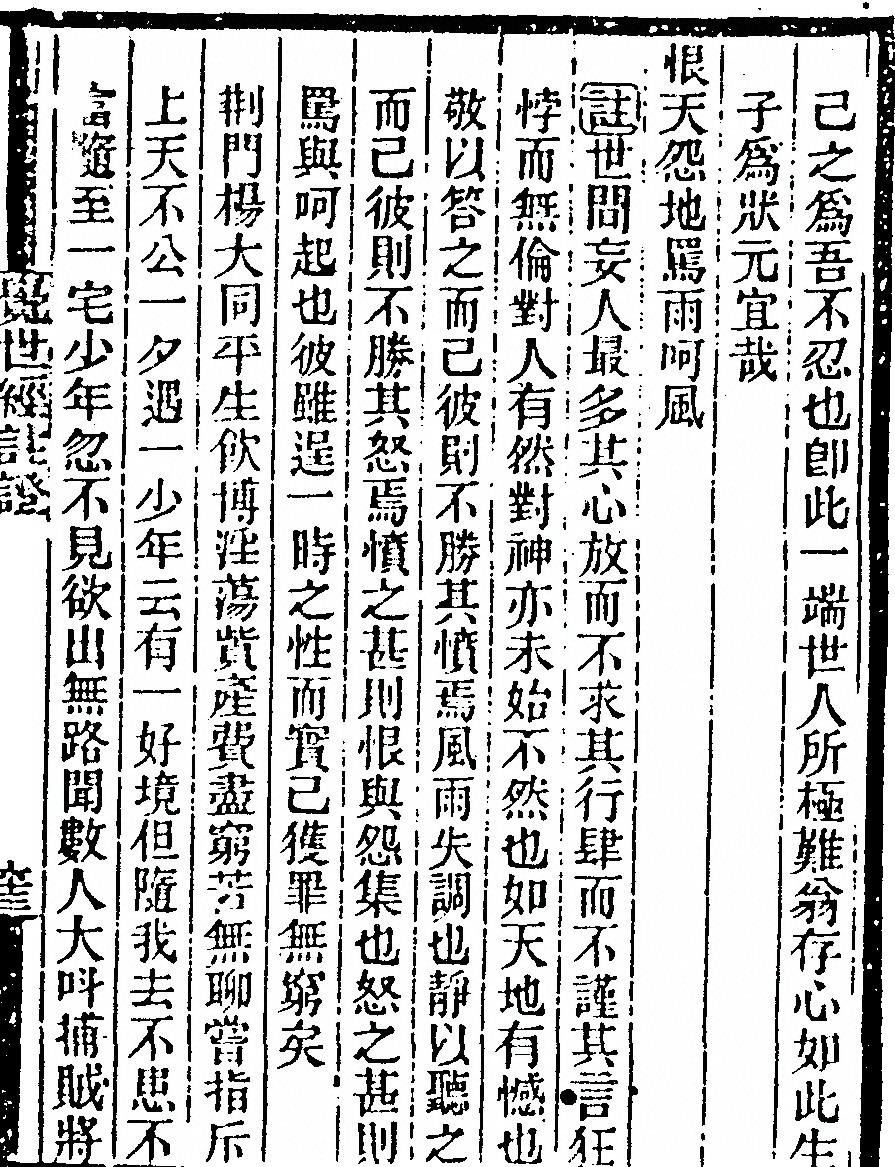 己之爲吾不忍也卽此一端世人所極難翁存心如此生
子爲狀元宜哉
恨天怨地罵雨呵風
註世間妄人最多其心放而不求其行肆而不謹其言狂
悖而無倫對人有然對神亦未始不然也如天地有憾也
敬以答之而已彼則不勝其憤焉風雨失調也靜以聽之
而已彼則不勝其怒焉憤之甚則恨與怨集也怒之甚則
罵與呵起也彼雖逞一時之性而實已獲罪無窮矣
荆門楊大同平生飲博淫蕩貲產費盡窮苦無聊嘗指斥
上天不公一夕遇一少年云有一好境但隨我去不患不
富隨至一宅少年忽不見欲出無路聞數人大呌捕賊將
覺世經註證